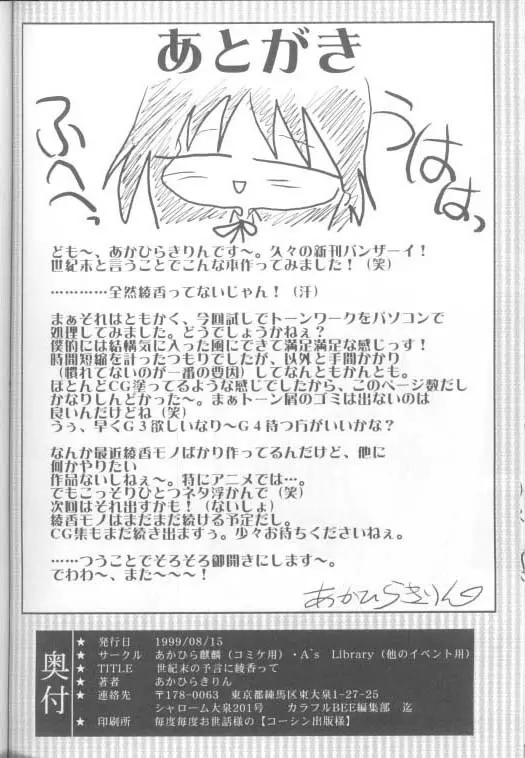 あとがき
うははっ
ふへへっ
ども～、あかひらきりんです～。久々の新刊バンザーイ！
世紀末と言うことでこんな本作ってみました！（笑）
…………全然綾香ってないじゃん！（汗）
まぁそれはともかく、今回試しでトーンワークをパソコンで
処理してみました。どうでしょうかねぇ？
僕的には結構気に入った風にできて満足満足な感じっす！
時間短縮を計ったつもりでしたが、以外と手間かかり
（慣れてないのが一番の要因）してなんともかんとも。
ほとんどCG塗ってるような感じでしたから、このページ数だし
かなりしんどかった～。まぁトーン屑のゴミは出ないのは
良いんだけどね（笑）
うぅ、早くG3欲しいなり～G4待つ方がいいかな？
なんか最近綾香モノばかり作ってるんだけど、他に
何かやりたい
作品ないしねぇ～。特にアニメでは…。
でもこっそりひとつネタ浮かんで（笑）
次回はそれ出すかも！（ないしょ）
綾香モノはまだまだ続ける予定だし。
CG集もまだ続き出ますぅ。少々お待ちくださいねぇ。
……つうことでそろそろ御開きにします～。
でわわ～、また～～～！
あかひらきりん
奥付
★ 発行日 1999/08/15
★ サークル あかひら麒麟（コミケ用）・A's Library（他のイベント用）
★ TITLE 世紀末の予言に綾香って
★ 著者 あかひらきりん
★ 連絡先 〒178-0063 東京都練馬区東大泉1-27-25
シャローム大泉201号 カラフルBEE編集部 迄
★ 印刷所 毎度毎度お世話様の【コーシン出版様】